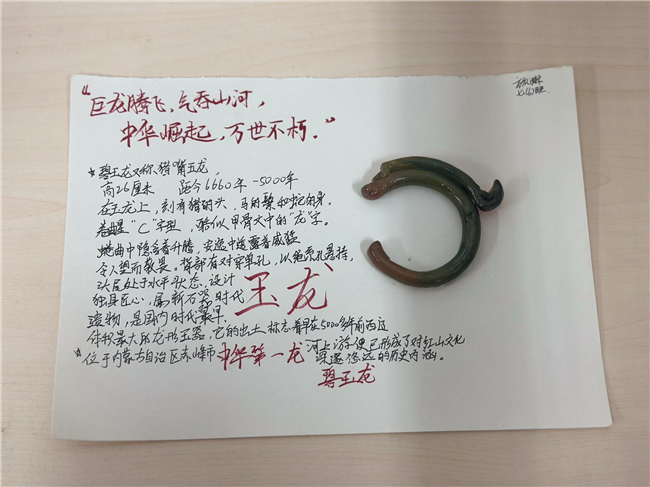 “巨龙腾飞，气吞山河，
中华崛起，万世不朽．”
七(6)班
*碧玉龙又称猪嘴玉龙，
高26厘米 距今6660年-5000年
在玉龙上，刻有猪的头，马的鬃和蛇的身．
卷曲 "C"字型，酷似甲骨文中的"龙"字。
蜷曲中隐含着升腾，安逸中透露着威猛
令人望而敬畏。背部有对穿单孔，以绳系孔悬挂，
头尾处于水平状态、设计
独具匠心，属新石器时代
遗物，是国内时代最早、
体积最大的龙形玉器，它的出土标志着早在5000多年前西辽
河上游便已形成了对红山文化
深邃悠远的历史内涵。
*位于内蒙古自治区赤峰市
玉龙
中华第一龙
碧玉龙